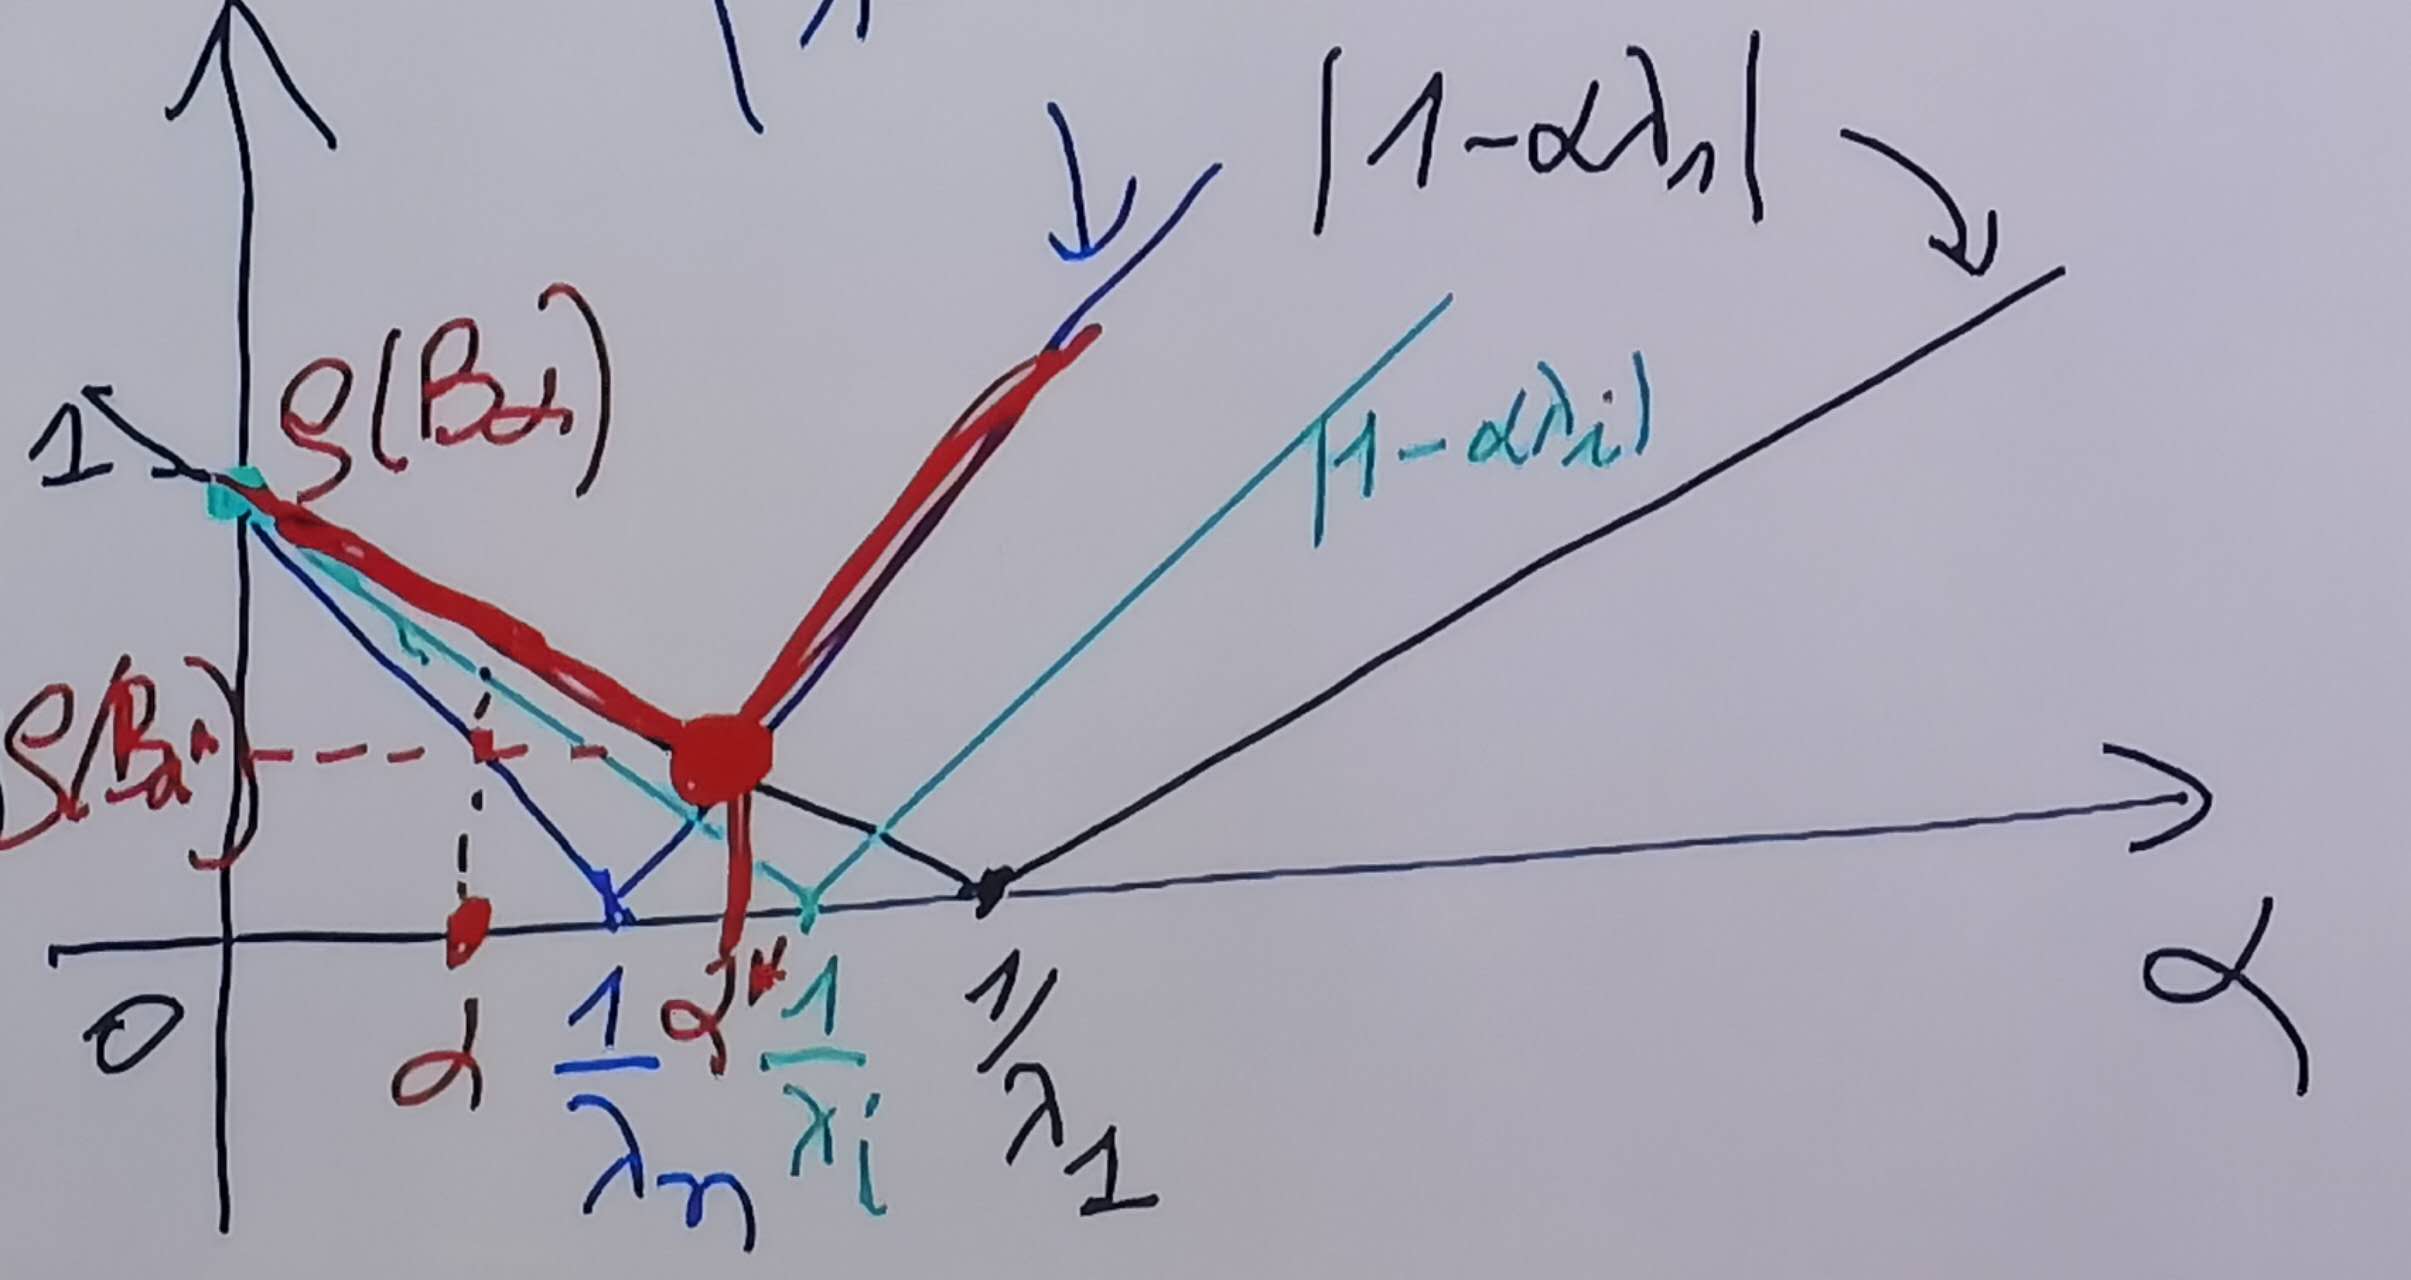 |1-αλ₁|
ρ(Bα)
1
|1-αλi|
ρ(Bα*)
0 α 1/λn α* 1/λi 1/λ1 α